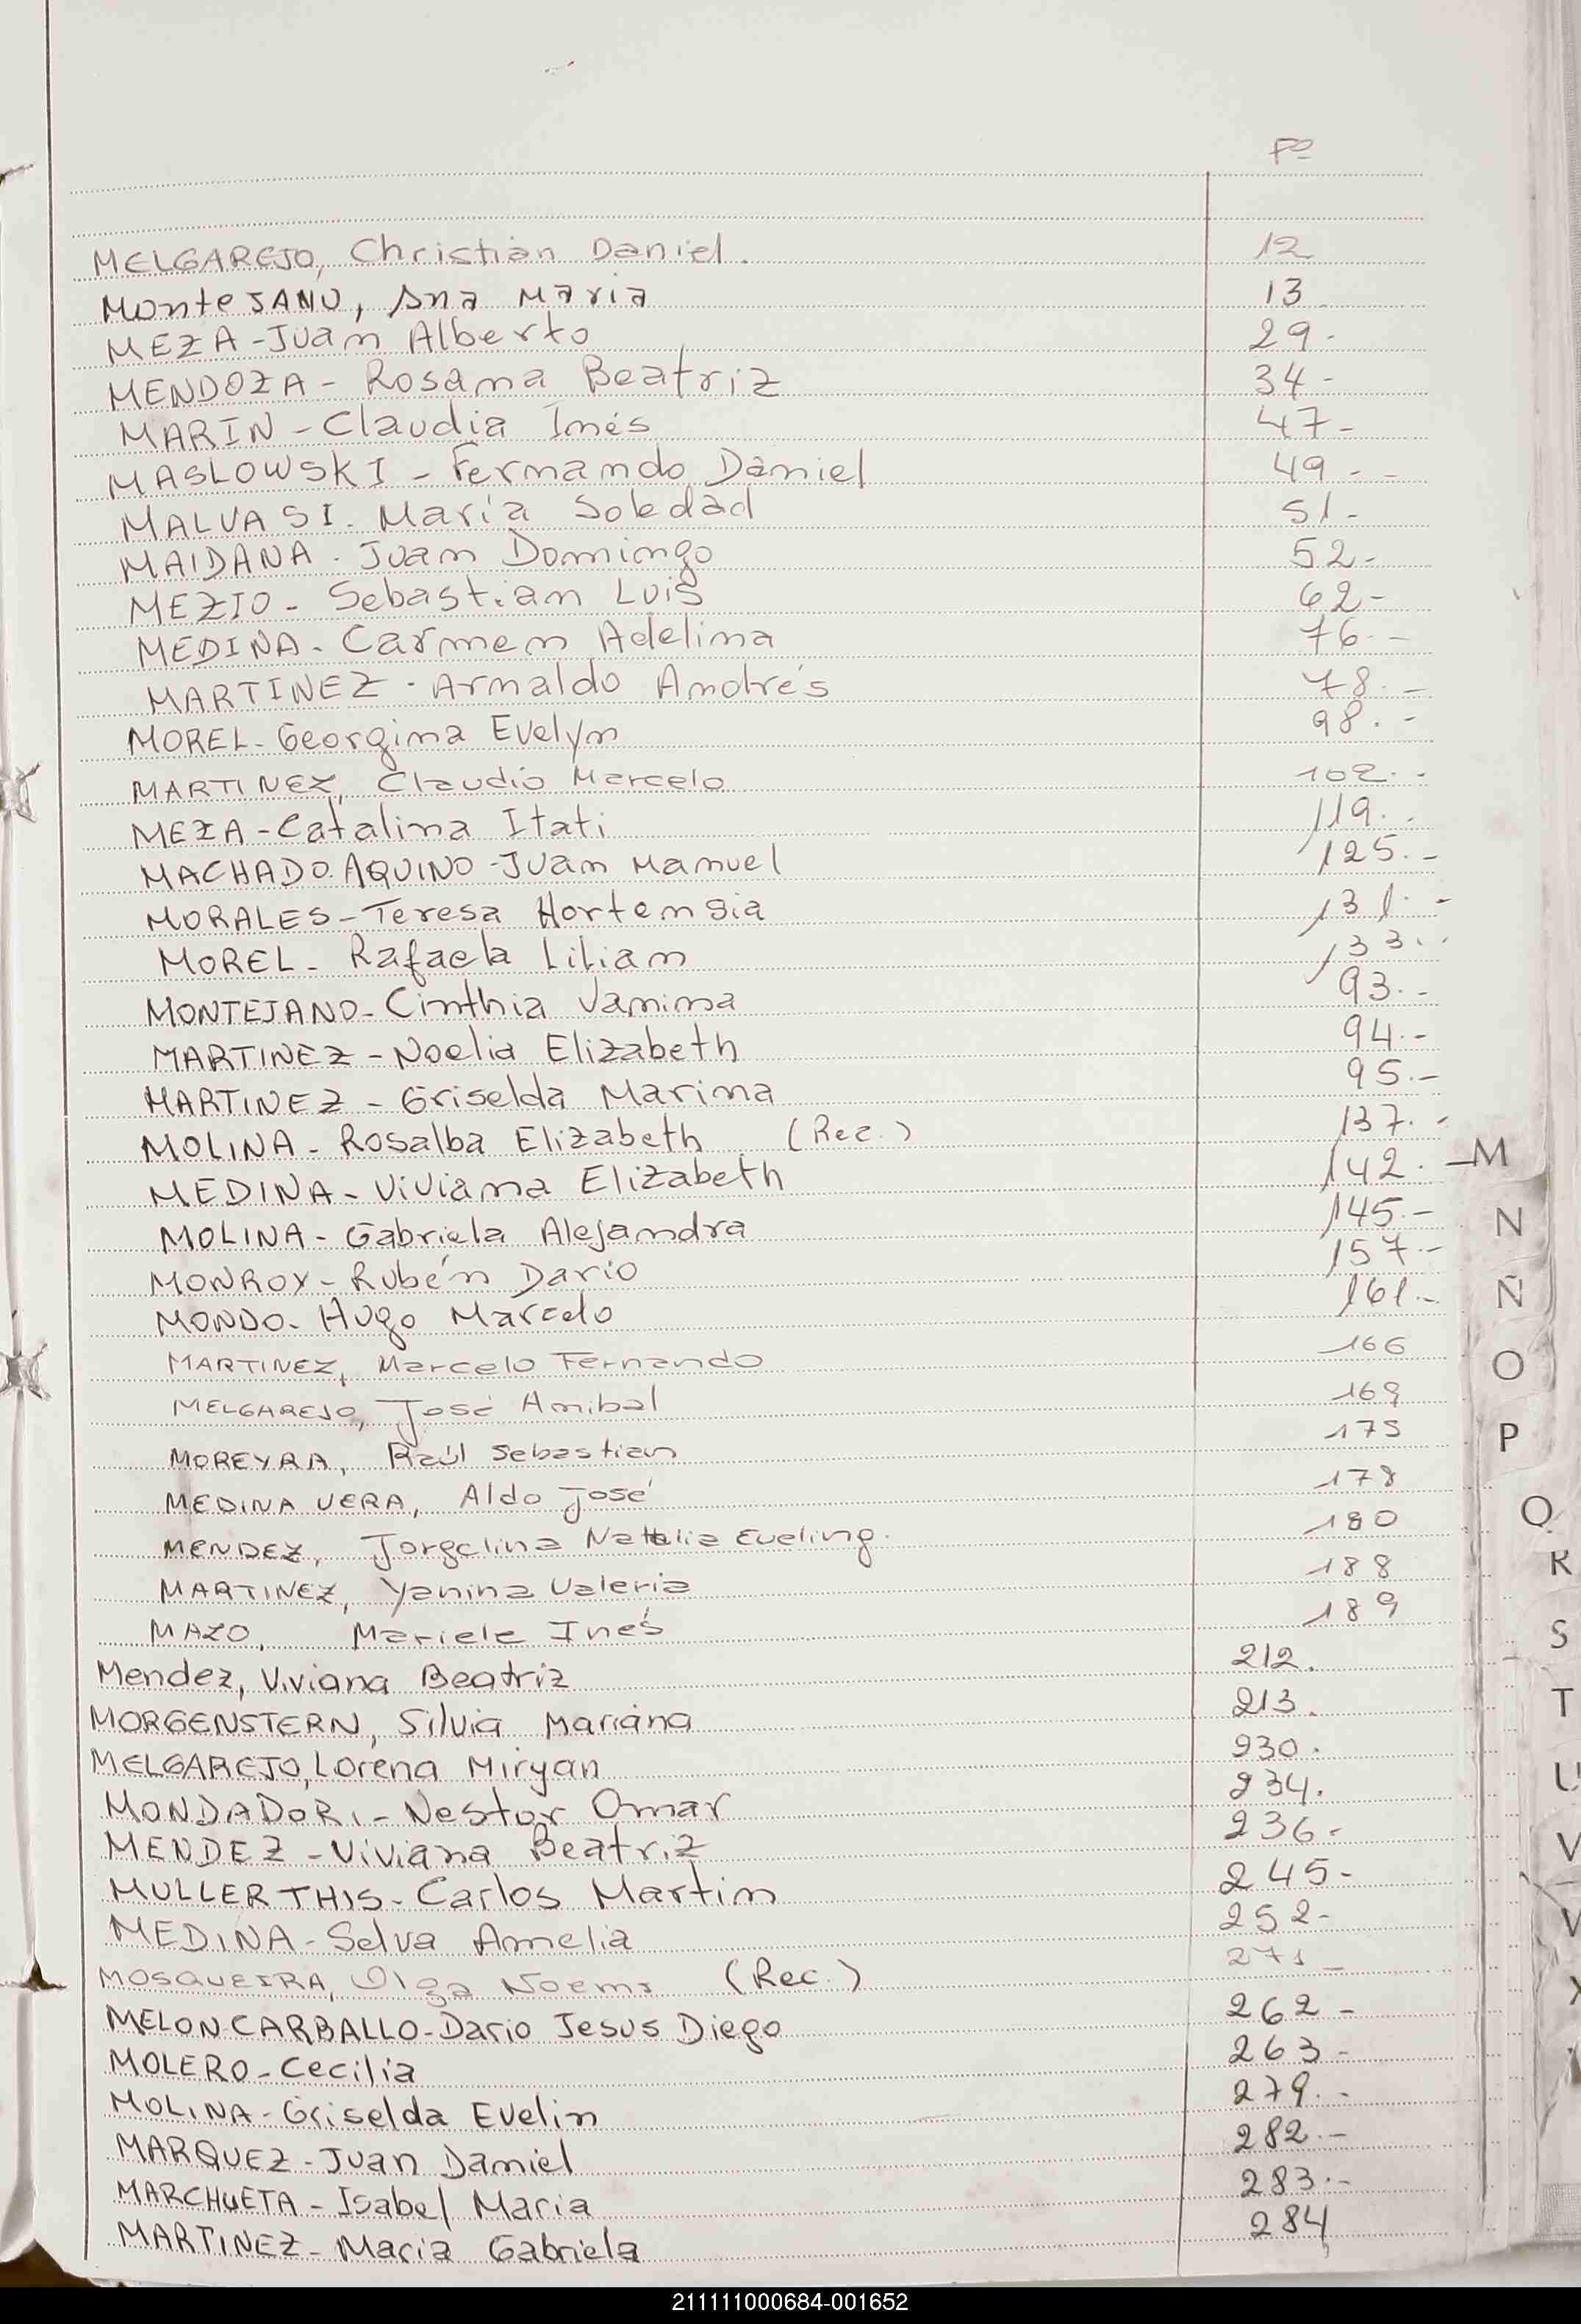 Fº
MELGAREJO, Christian Daniel. 12
MonteJANO, Ana Maria 13
MEZA - Juan Alberto 29.
MENDOZA - Rosana Beatriz 34-
MARIN - Claudia Inés 47-
MASLOWSKI - Fernando Daniel 49 - -
MALVASI. María Soledad 51-
MAIDANA. Juan Domingo 52-
MEZIO - Sebastian Luis 62-
MEDINA. Carmen Adelina 76.-
MARTINEZ. Arnaldo Andrés 78.-
MOREL - Georgina Evelyn 98.-
MARTINEZ, Claudio Marcelo 102..
MEZA - Catalina Itati 119..
MACHADO AQUINO - Juan Manuel 125.-
MORALES - Teresa Hortensia 131.-
MOREL - Rafaela Lilian 133..
MONTEJANO - Cinthia Vanina 93.-
MARTINEZ - Noelia Elizabeth 94.-
MARTINEZ - Griselda Marina 95.-
MOLINA - Rosalba Elizabeth (Rec.) 137.-
MEDINA - Viviana Elizabeth 142.-
MOLINA - Gabriela Alejandra 145.-
MONROY - Rubén Dario 157.-
MONDO - Hugo Marcelo 161.-
MARTINEZ, Marcelo Fernando 166
MELGAREJO, José Anibal 169
MOREYRA, Raúl Sebastian 175
MEDINA VERA, Aldo José 178
MENDEZ, Jorgelina Natalia Eveling. 180
MARTINEZ, Yanina Valeria 188
MAZO, Mariela Inés 189
Mendez, Viviana Beatriz 212.
MORGENSTERN, Silvia Mariana 213.
MELGAREJO, Lorena Miryan 230.
MONDADORI - Nestor Omar 234.
MENDEZ - Viviana Beatriz 236-
MULLER THIS - Carlos Martin 245-
MEDINA - Selva Amelia 252-
MOSQUEIRA, Olga Noemi (Rec.) 271 -
MELON CARBALLO - Dario Jesus Diego 262 -
MOLERO - Cecilia 263 -
MOLINA - Griselda Evelin 279.-
MARQUEZ - Juan Daniel 282.-
MARCHUETA - Isabel Maria 283.-
MARTINEZ - Maria Gabriela 284
M
N
Ñ
O
P
Q
R
S
T
U
V
211111000684-001652